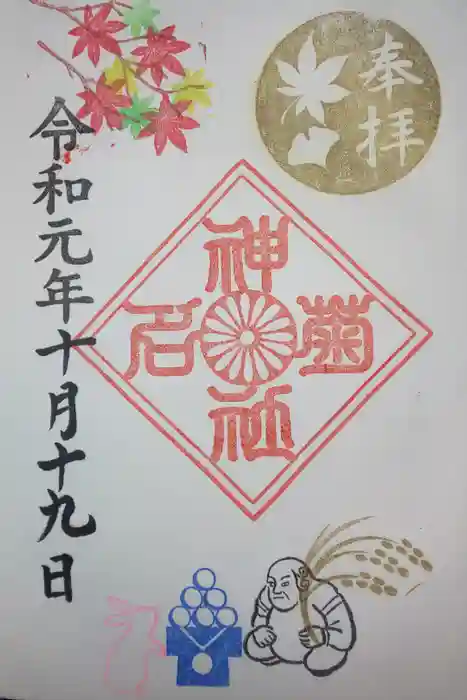 奉拝
菊名
神社
令和元年十月十九日